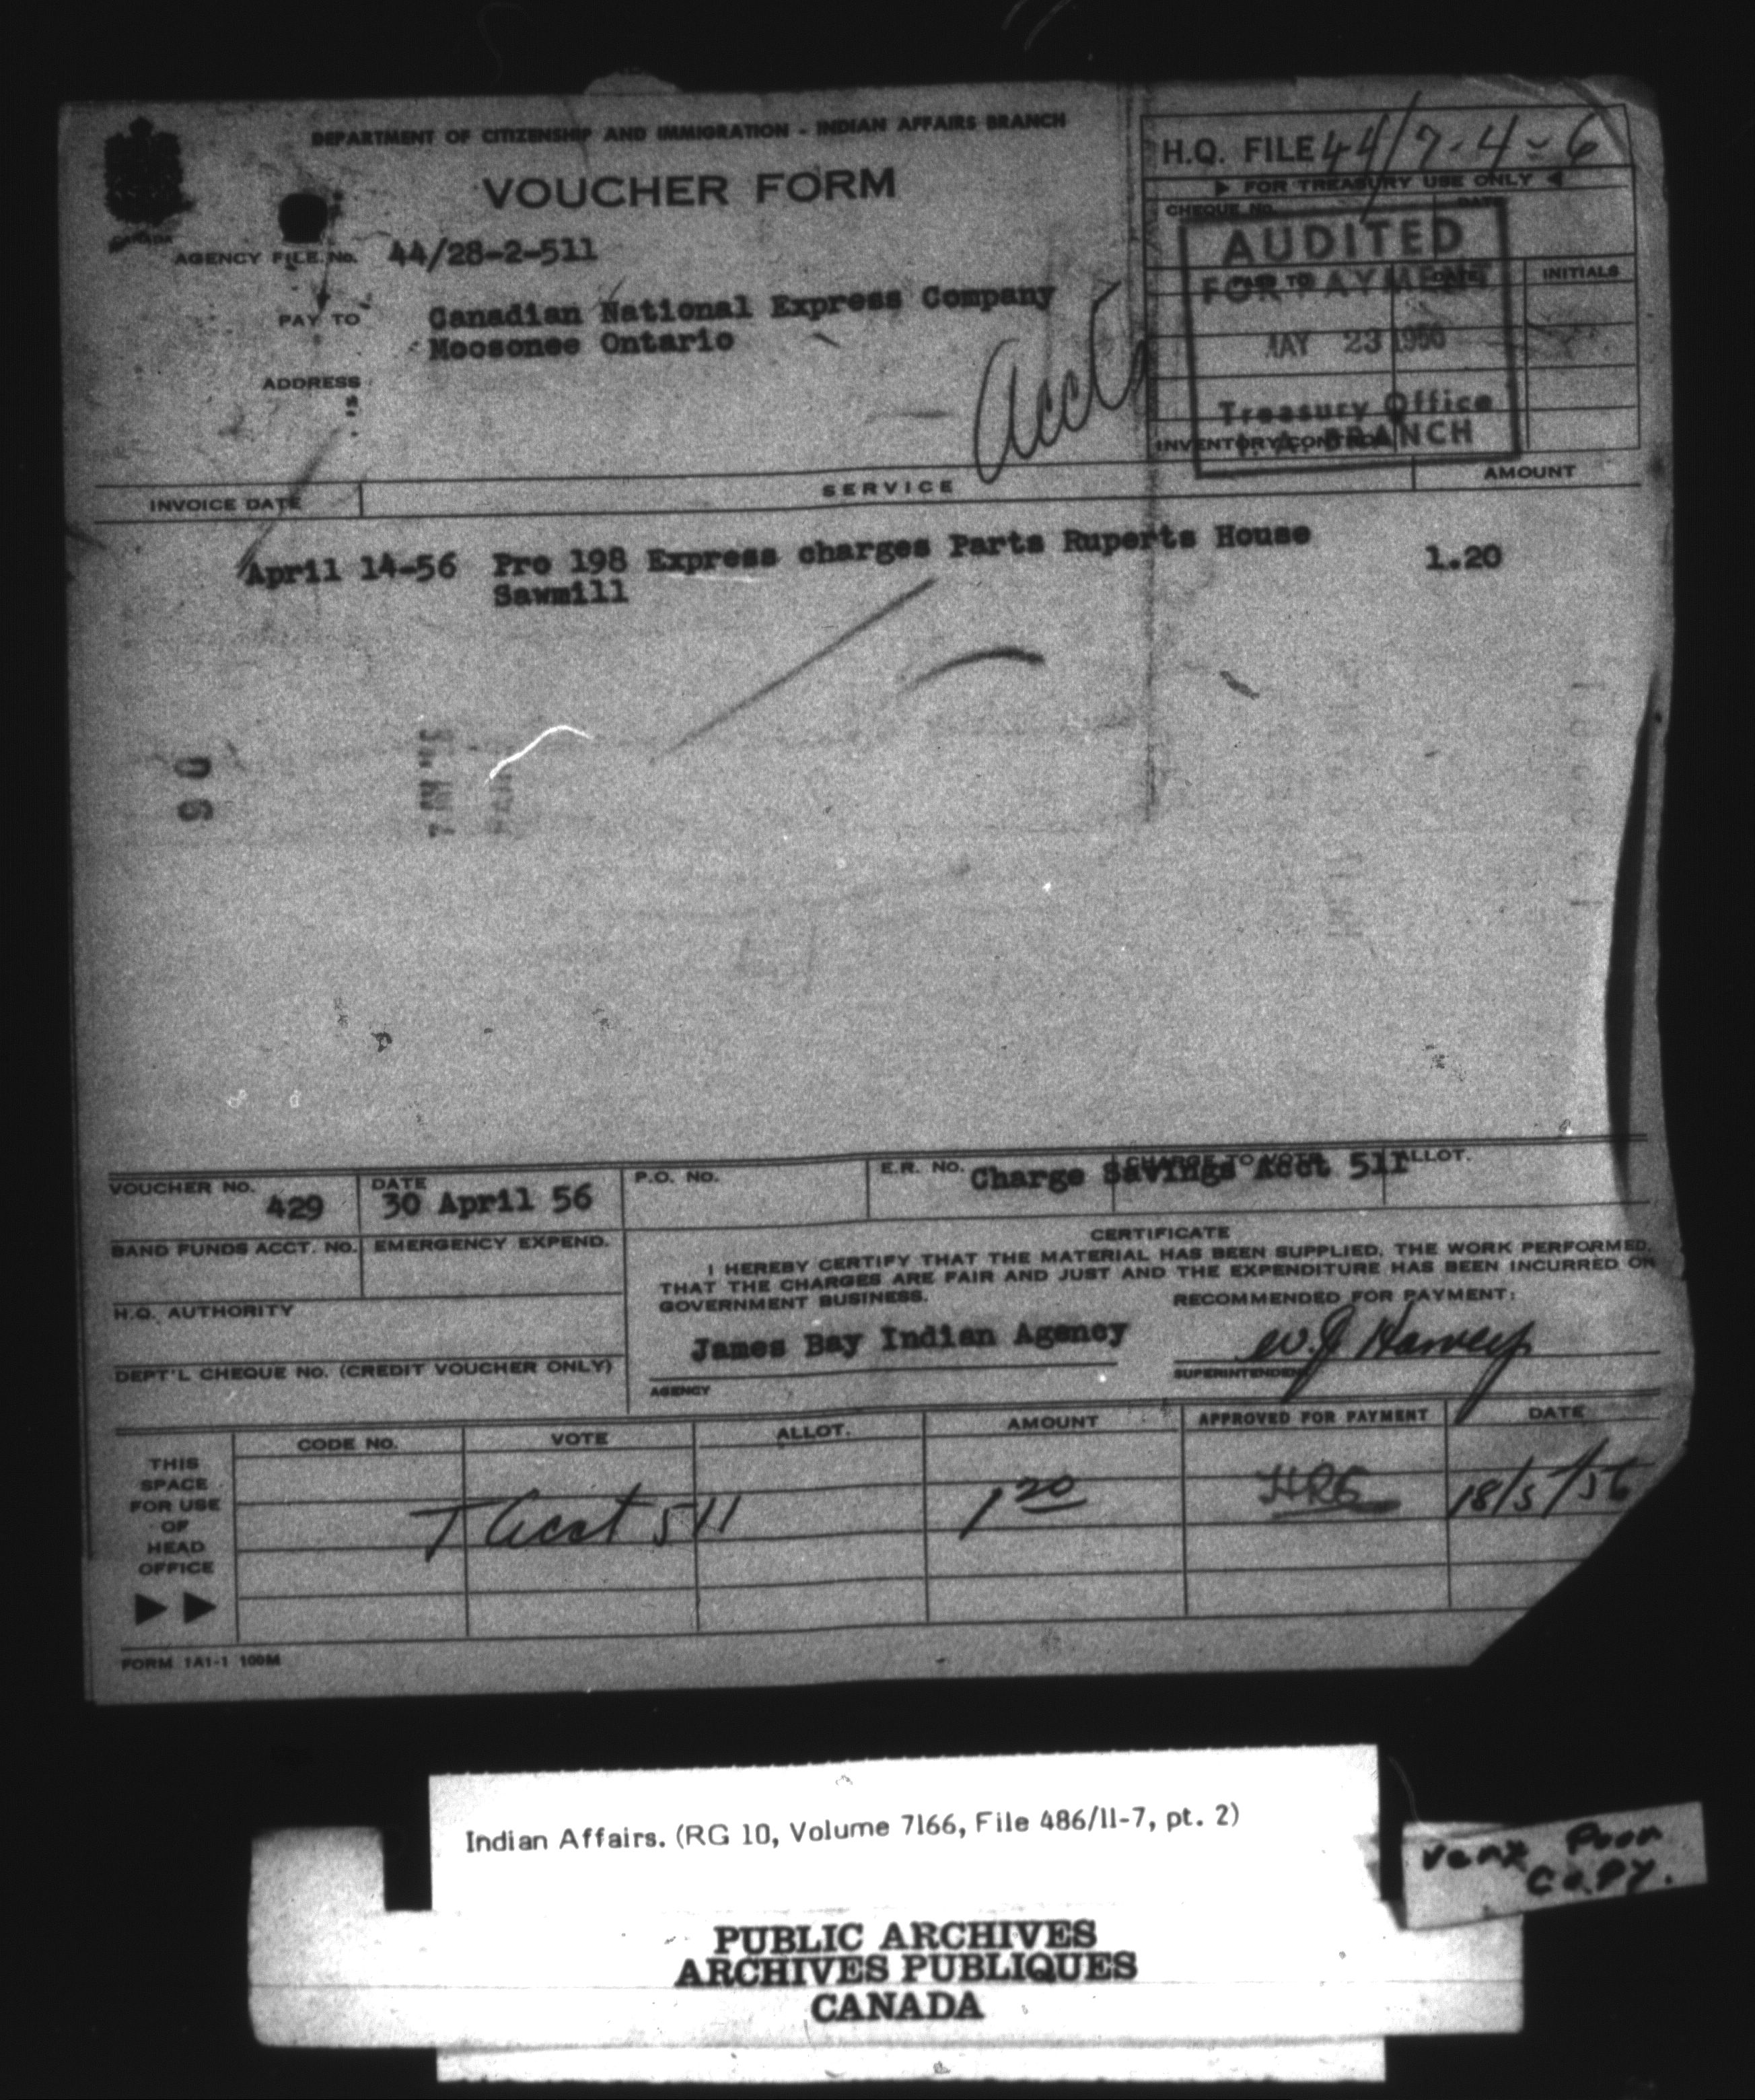 DEPARTMENT OF CITIZENSHIP AND IMMIGRATION - INDIAN AFFAIRS BRANCH
VOUCHER FORM
H.Q. FILE 44/7-4-6
▶ FOR TREASURY USE ONLY ◀
CHEQUE No. DATE
AGENCY FILE No. 44/28-2-511
AUDITED
FOR PAYMENT
PAID TO DATE INITIALS
MAY 23 1956
Treasury Office
I.A. BRANCH
INVENTORY CONTROL
PAY TO Canadian National Express Company
Moosonee Ontario
ADDRESS
Acct
INVOICE DATE SERVICE AMOUNT
April 14-56 Pro 198 Express charges Parts Ruperts House 1.20
Sawmill
VOUCHER NO. 429
DATE 30 April 56
P.O. No.
E.R. NO. CHARGE TO VOTE ALLOT.
Charge Savings Acct 511
BAND FUNDS ACCT. NO. EMERGENCY EXPEND.
H.Q. AUTHORITY
DEPT'L CHEQUE NO. (CREDIT VOUCHER ONLY)
CERTIFICATE
I HEREBY CERTIFY THAT THE MATERIAL HAS BEEN SUPPLIED, THE WORK PERFORMED,
THAT THE CHARGES ARE FAIR AND JUST AND THE EXPENDITURE HAS BEEN INCURRED ON
GOVERNMENT BUSINESS.
RECOMMENDED FOR PAYMENT:
James Bay Indian Agency
AGENCY
W.J Harvey
SUPERINTENDENT
THIS SPACE FOR USE OF HEAD OFFICE ▶▶
CODE NO. VOTE ALLOT. AMOUNT APPROVED FOR PAYMENT DATE
T Acct 511 1 20 18/5/56
FORM 1A1-1 100M
Indian Affairs. (RG 10, Volume 7166, File 486/11-7, pt. 2)
very Poor
COPY.
PUBLIC ARCHIVES
ARCHIVES PUBLIQUES
CANADA